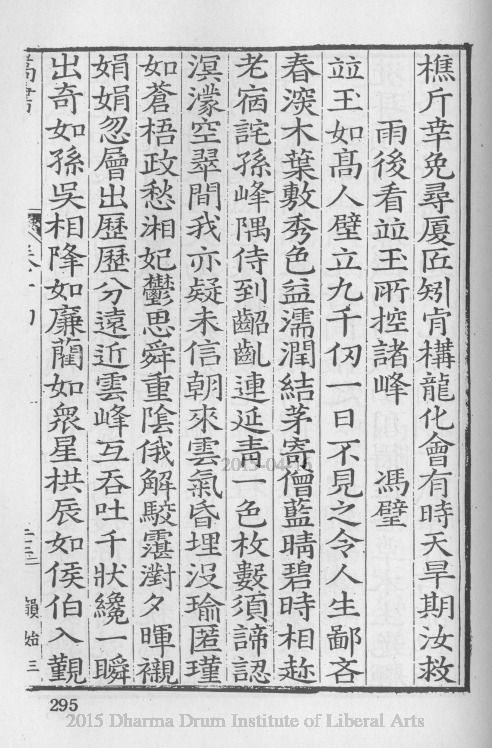 樵斤幸免尋厦匠矧肯構龍化會有時天旱期汝救
雨後看竝玉所控諸峰 馮璧
竝玉如髙人壁立九千仭一日不見之令人生鄙吝
春深木葉敷秀色益濡潤結茅寄僧藍晴碧時相趂
老宿詫孫峰隅侍到齠齓連延靑一色枚數須諦認
溟濛空翠間我亦疑未信朝來雲氣昏埋没瑜匿瑾
如蒼梧政愁湘妃鬱思舜重陰俄解駮霮霴夕暉襯
娟娟忽層出歷歷分遠近雲峰互吞吐千狀纔一瞬
出奇如孫吳相降如廉藺如衆星拱辰如侯伯入覲
295
2015-04-16
2015 Dharma Drum Institute of Liberal Arts